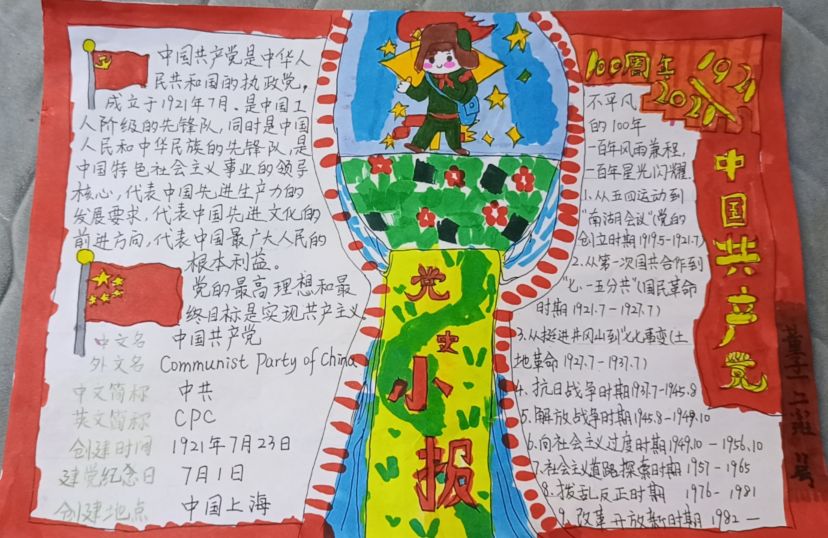 中国共产党是中华人
民共和国的执政党,
成立于1921年7月.是中国工
人阶级的先锋队,同时是中国
人民和中华民族的先锋队,是
中国特色社会主义事业的领导
核心,代表中国先进生产力的
发展要求,代表中国先进文化的
前进方向,代表中国最广大人民的
根本利益。
党的最高理想和最
终目标是实现共产主义
中文名 中国共产党
外文名 Communist Party of China
中文简称 中共
英文简称 CPC
创建时间 1921年7月23日
建党纪念日 7月1日
创建地点 中国上海
党史小报
100周年 1921
2021
不平凡
的100年
一百年风雨兼程,
一百年星光闪耀.
1.从五四运动到
"南湖会议"(党的
创立时期1919.5-1921.7)
2.从第一次国共合作到
"七·一五分共"(国民革命
时期1921.7-1927.7)
3.从挺进井冈山到"七七事变(土
地革命1927.7-1937.7)
4.抗日战争时期1937.7-1945.8
5.解放战争时期1945.8-1949.10
6.向社会主义过度时期1949.10-1956.10
7.社会主义道路探索时期1957-1965
8.拨乱反正时期 1976-1981
9.改革开放新时期 1982—
中国共产党